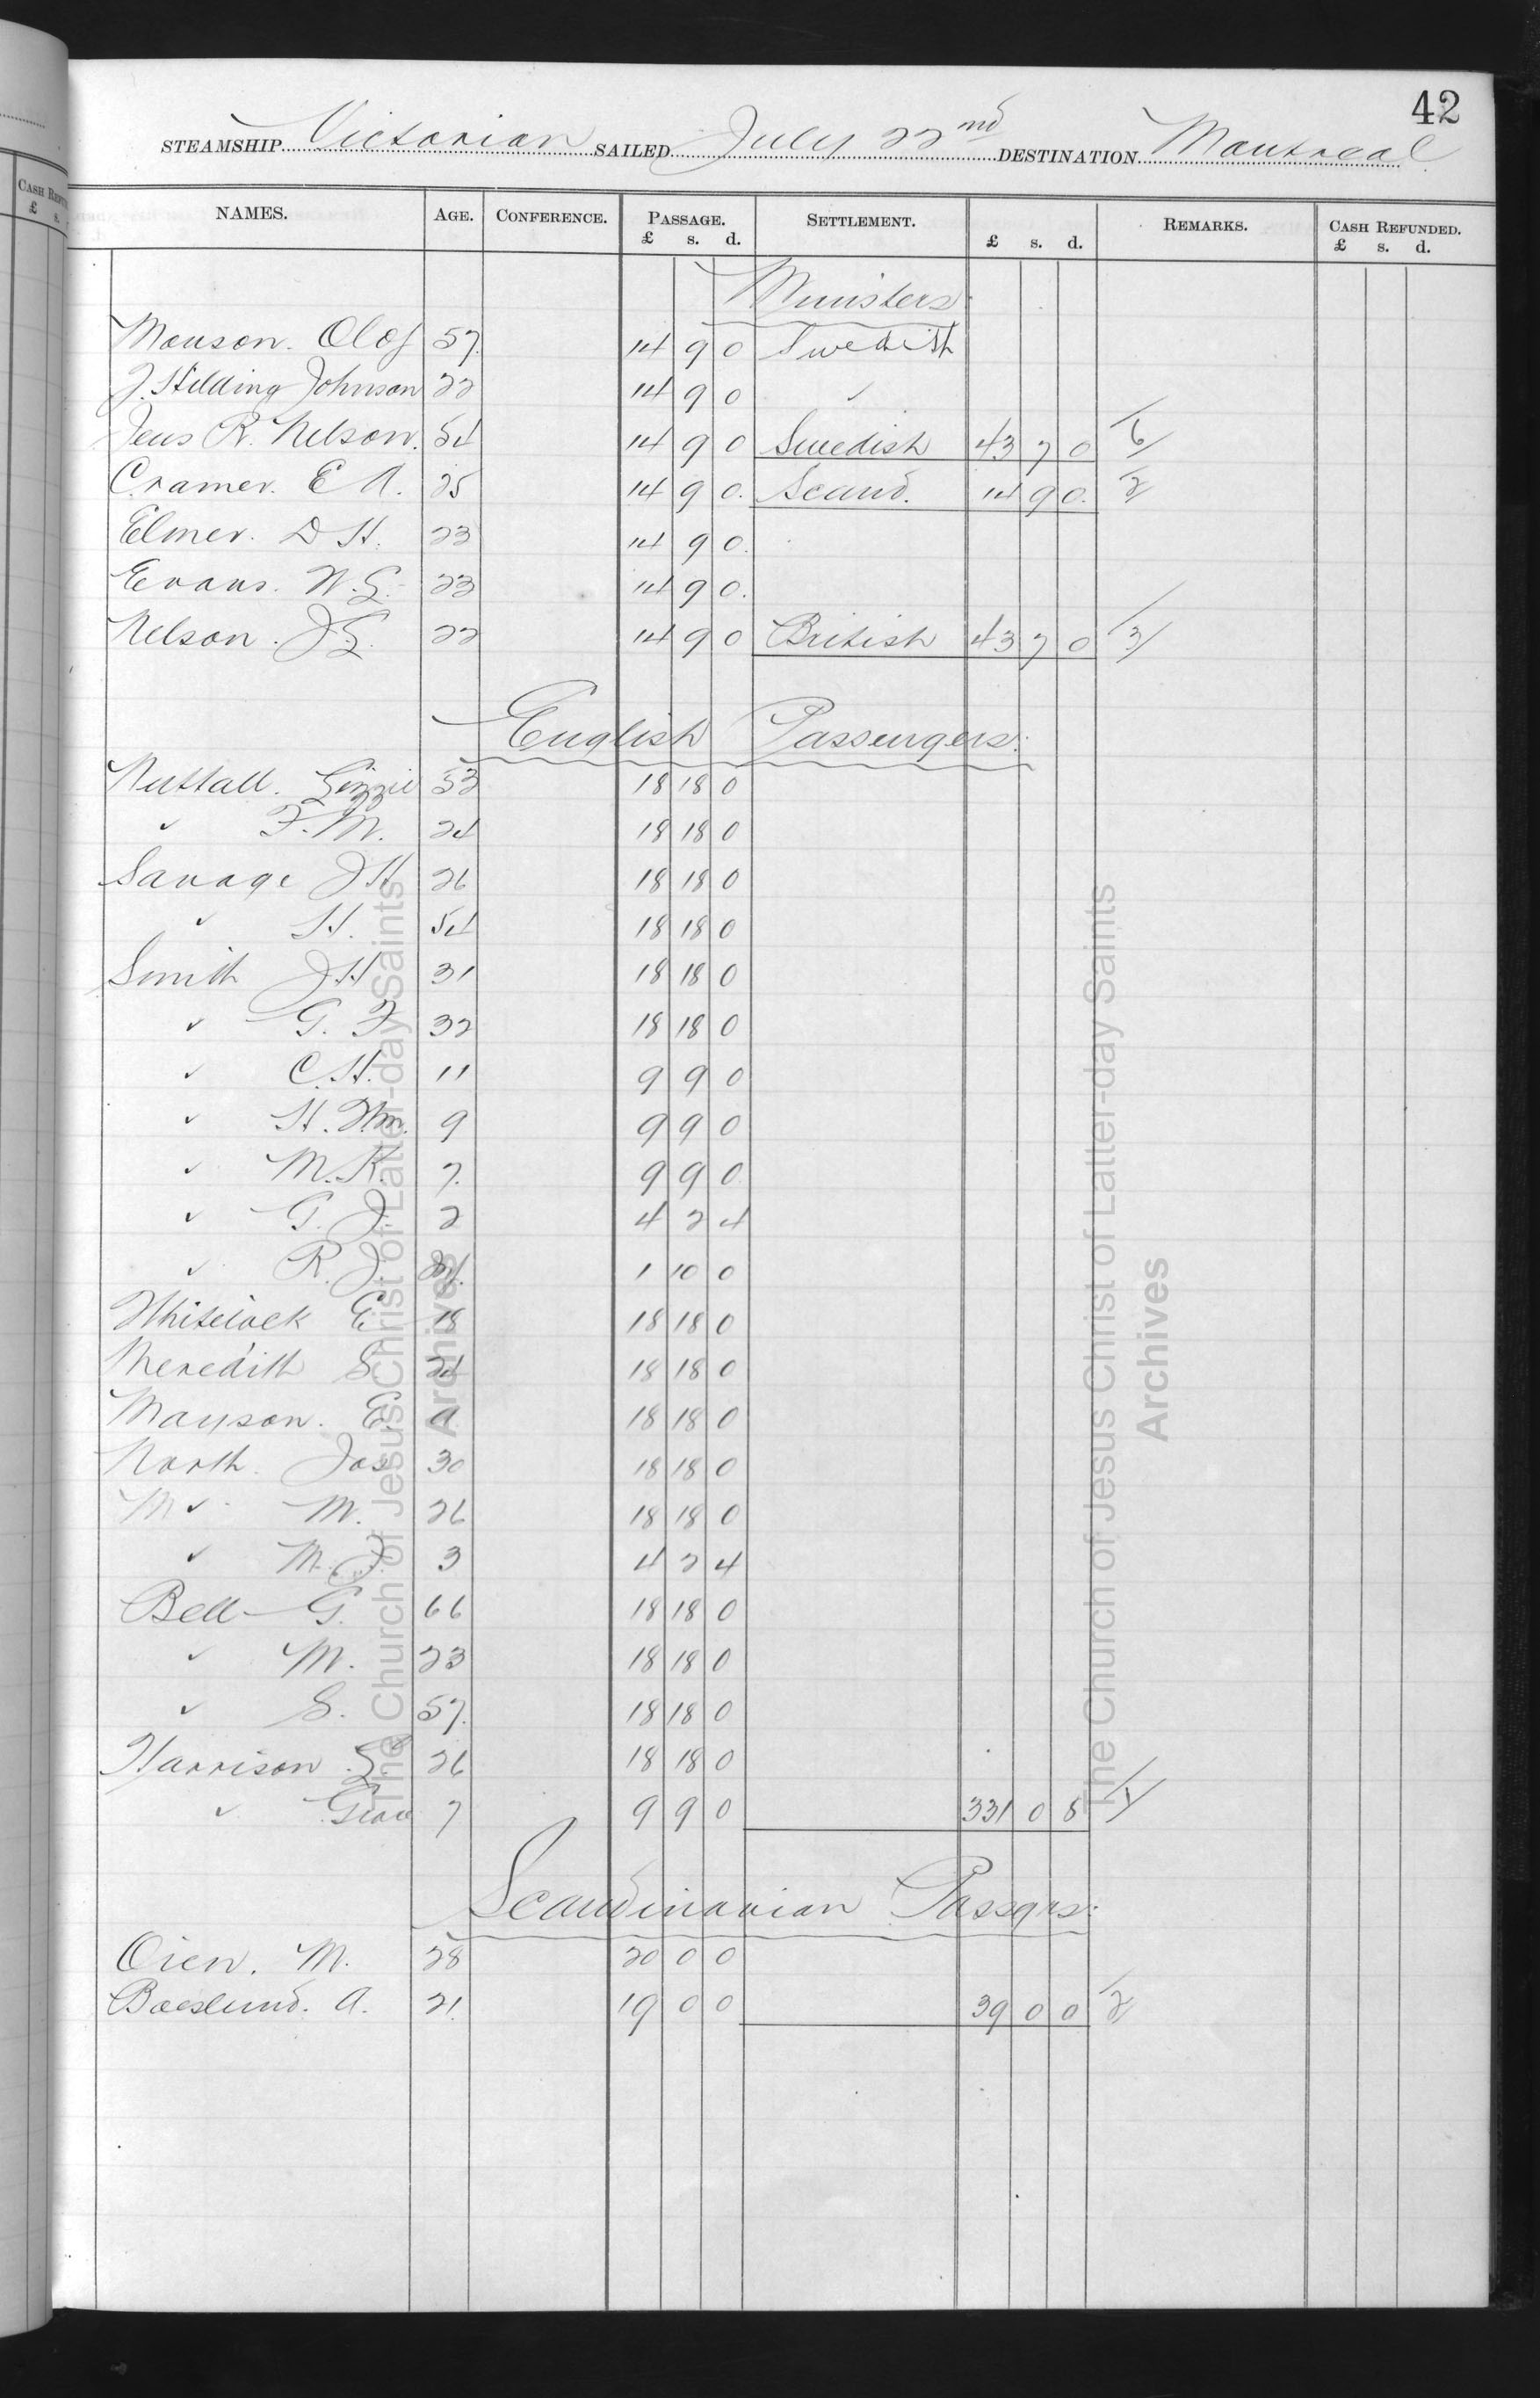 42
STEAMSHIP Victorian SAILED July 22nd DESTINATION Montreal
NAMES. AGE. CONFERENCE. PASSAGE. £ s. d. SETTLEMENT. £ s. d. REMARKS. CASH REFUNDED. £ s. d.
Ministers
Monson. Olof 57. 14 9 0 Swedish
J. Hilding Johnson 22 14 9 0 "
Jens R. Nelson. 54 14 9 0 Swedish 43 7 0
Cramer. E A. 25 14 9 0. Scand. 14 9 0. 2
Elmer. D H. 23 14 9 0.
Evans. W. G. 23 14 9 0.
Nelson. J G. 22 14 9 0 British 43 7 0 3/
English Passengers:
Nuttall. Lizzie 53 18 18 0
" F. M. 24 18 18 0
Savage J H 26 18 18 0
" H. 54 18 18 0
Smith J H 31 18 18 0
" G. F 32 18 18 0
" C. H. 11 9 9 0
" H. Wm. 9 9 9 0
" M. K. 7. 9 9 0
" G. J. 2 4 2 4
" R. J. 1 10 0
Whitelock E 18 18 18 0
Meredith S 24 18 18 0
Mayson. E. a 18 18 0
North. Jos 30 18 18 0
" M. 26 18 18 0
" M. J. 3 4 2 4
Bell G. 66 18 18 0
" M. 23 18 18 0
" S. 57. 18 18 0
Harrison 26 18 18 0
" 7 9 9 0 331 0 8
Scandinavian Passgrs:
Oien. M. 28 20 0 0
Boeslund. A. 21. 19 0 0 39 0 0 2
The Church of Jesus Christ of Latter-day Saints
Archives
The Church of Jesus Christ of Latter-day Saints
Archives
CASH REFU
£ s.